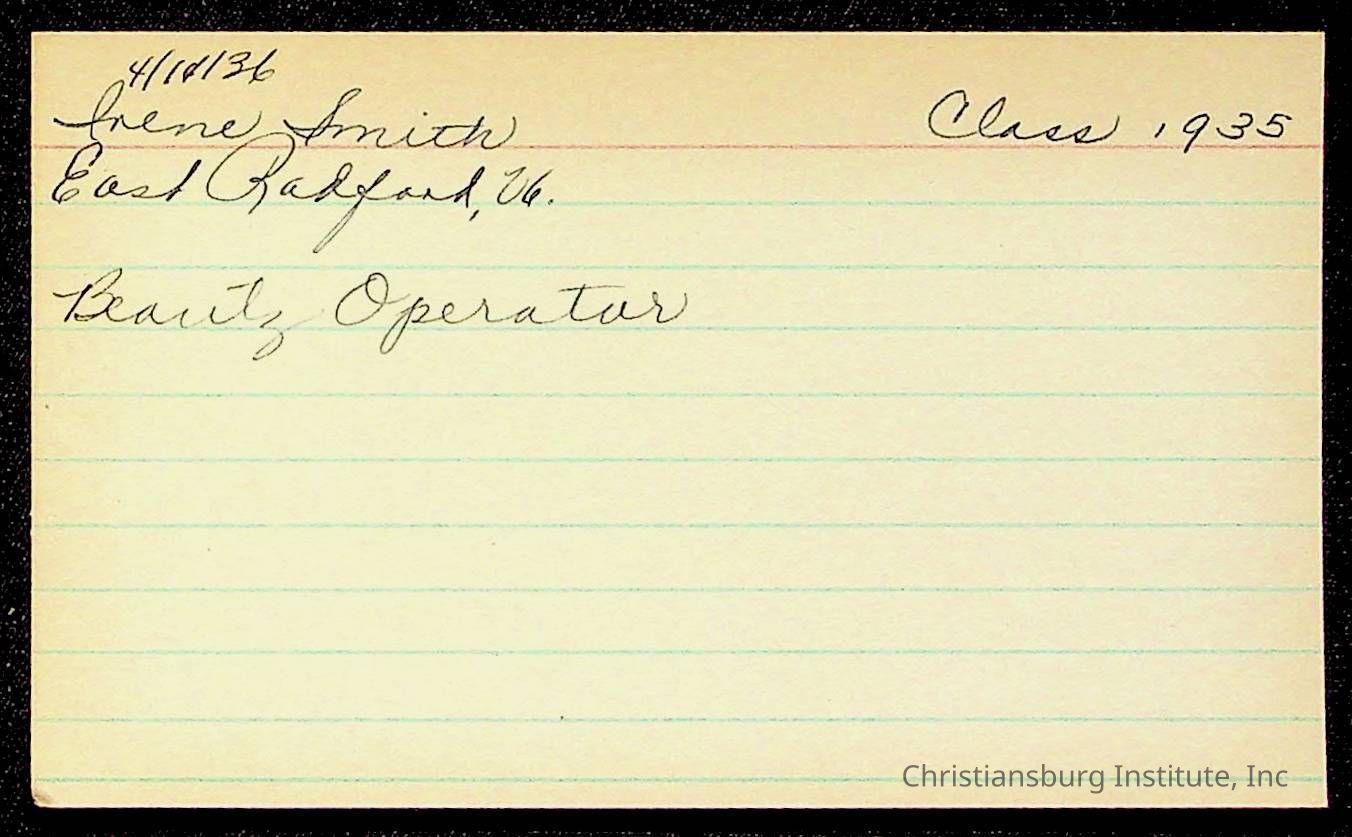 4/14/36
Irene Smith Class 1935
East Radford, Va.
Beauty Operator
Christiansburg Institute, Inc